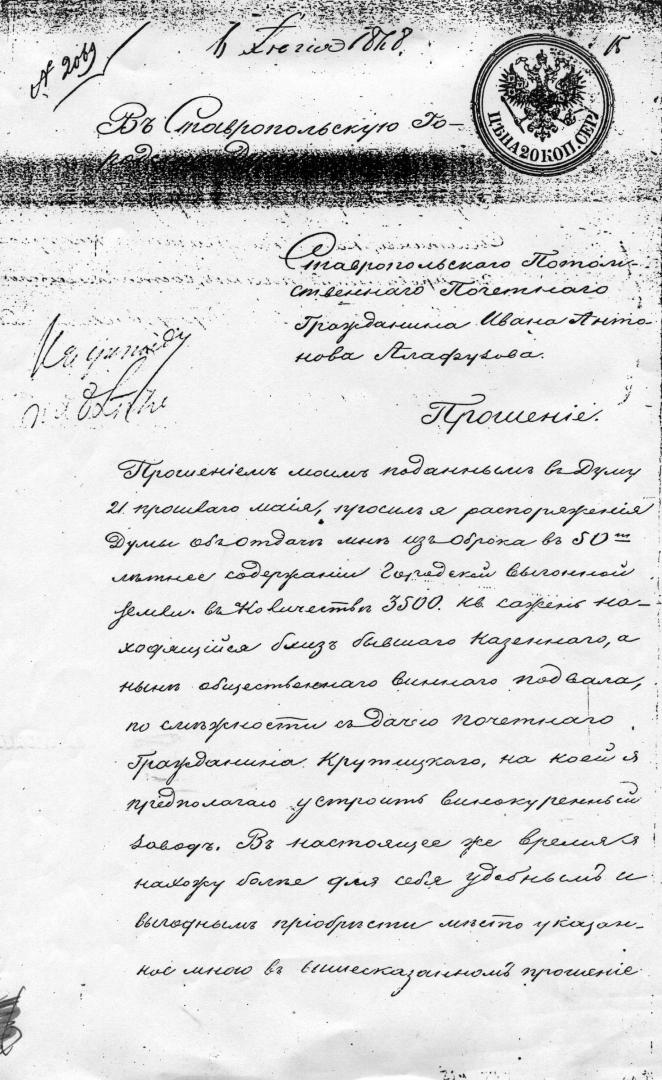 № 2069
1868.
ЦѢНА 20 КОП. СЕР.
Въ Ставропольскую Го-
родскую Думу
Ставропольскаго Потом-
ственнаго Почетнаго
Гражданина Ивана Анто-
нова Алафузова.
Прошеніе.
Прошеніемъ моимъ поданнымъ въ Думу
21 прошлаго маія, просилъ я распоряженія
Думы объ отдачѣ мнѣ изъ оброка въ 50
лѣтнее содержаніи Городской выгонной
земли въ Количествѣ 3500. кв сажень на-
ходящійся близъ бывшаго казеннаго, а
нынѣ общественнаго виннаго подвала,
по смѣжности съ дачею почетнаго
Гражданина Крутицкаго, на коей я
предполагаю устроить винокуренный
заводъ. Въ настоящее же время я
нахожу болѣе для себя удобнымъ и
выгоднымъ пріобрѣсти мѣсто указан-
ное мною въ вышесказанномъ прошеніе